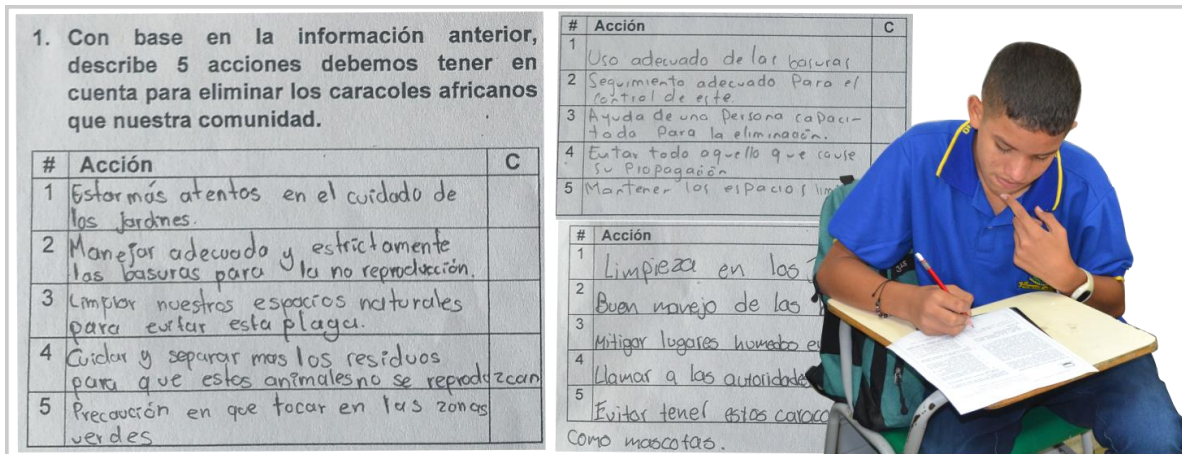 1. Con base en la información anterior,
describe 5 acciones debemos tener en
cuenta para eliminar los caracoles africanos
que nuestra comunidad.
# Acción C
1 Estar más atentos en el cuidado de
los jardines.
2 Manejar adecuada y estrictamente
las basuras para la no reproducción.
3 Limpiar nuestros espacios naturales
para evitar esta plaga.
4 Cuidar y separar mas los residuos
para que estos animales no se reproduzcan
5 Precaución en que tocar en las zonas
verdes
# Acción C
1
Uso adecuado de las basuras
2 Seguimiento adecuado Para el
control de este.
3 Ayuda de una Persona capaci-
tada Para la eliminación.
4 Evitar todo aquello que cause
su Propagación
5 Mantener los esPacios lim
# Acción
1
Limpieza en los
2
Buen manejo de las
3
Mitigar lugares humedos
4
Llamar a las autoridade
5
Evitar tener estos caraco
como mascotas.